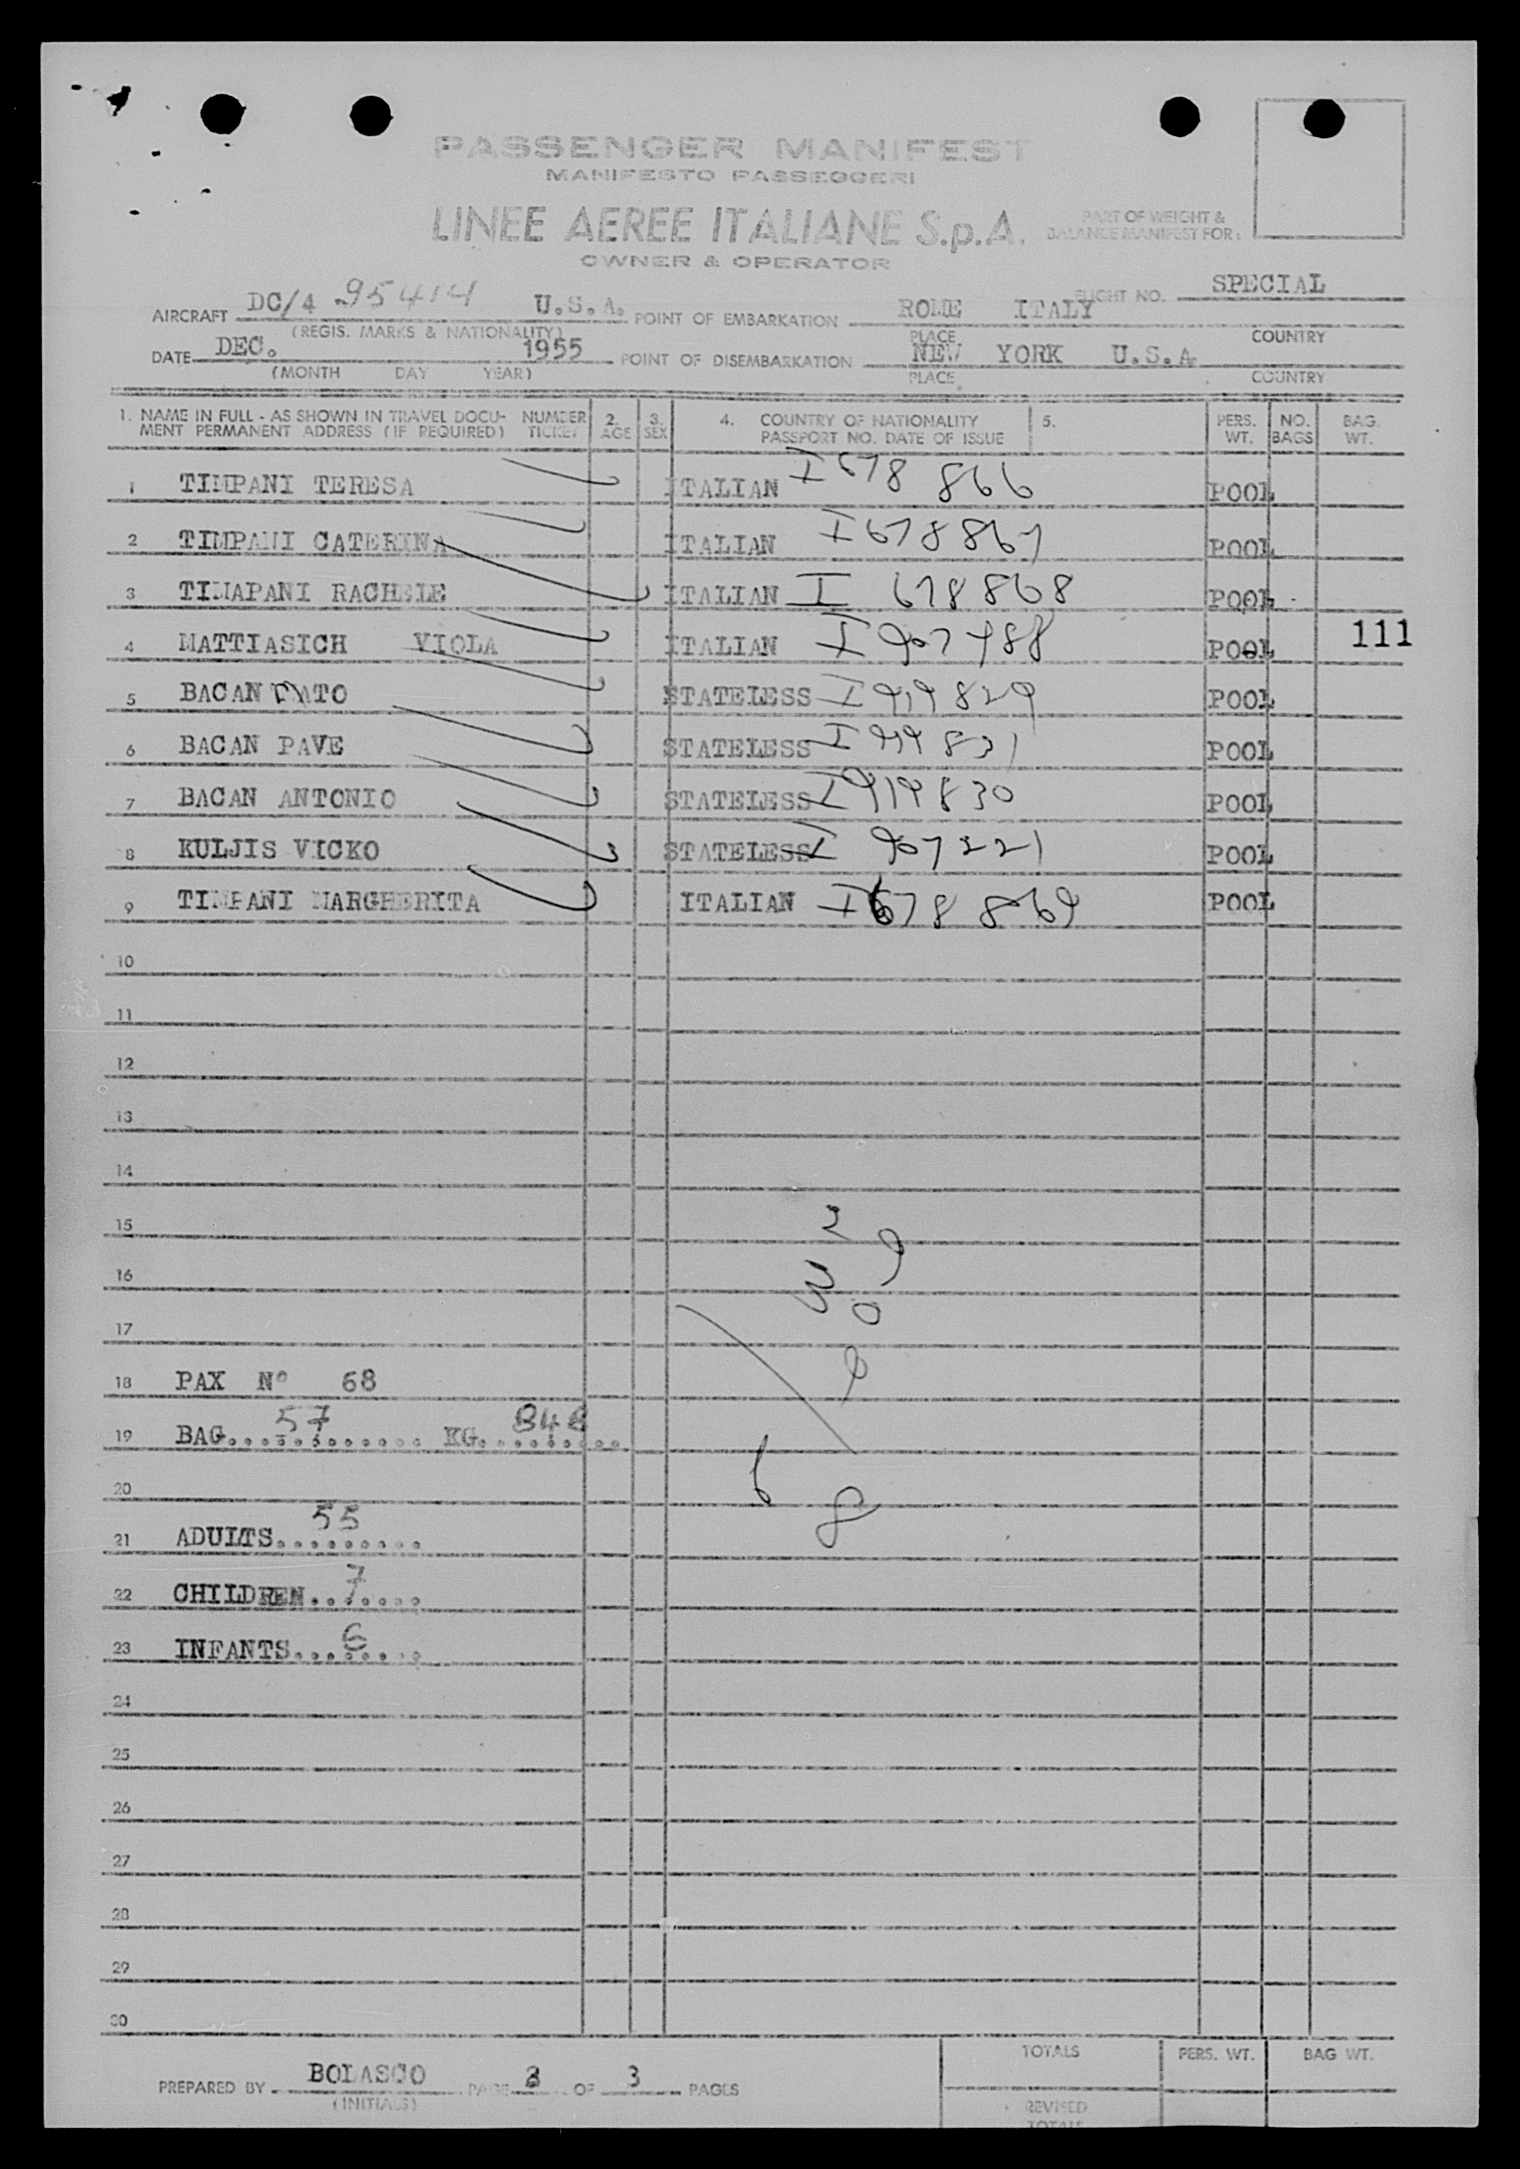 PASSENGER MANIFEST
MANIFESTO PASSEGGERI
LINEE AEREE ITALIANE S.p.A.
OWNER & OPERATOR
PART OF WEIGHT &
BALANCE MANIFEST FOR:
AIRCRAFT DC/4 95414 U.S.A. POINT OF EMBARKATION ROME ITALY FLIGHT NO. SPECIAL
(REGIS. MARKS & NATIONALITY) PLACE COUNTRY
DATE DEC. 1955 POINT OF DISEMBARKATION NEW YORK U.S.A
(MONTH DAY YEAR) PLACE COUNTRY
1. NAME IN FULL - AS SHOWN IN TRAVEL DOCU- NUMBER 2. 3. 4. COUNTRY OF NATIONALITY 5. PERS. NO. BAG.
MENT PERMANENT ADDRESS (IF REQUIRED) TICKET AGE SEX PASSPORT NO. DATE OF ISSUE WT. BAGS WT.
1 TIMPANI TERESA ITALIAN I 678 866 POOL
2 TIMPANI CATERINA ITALIAN I 678867 POOL
3 TIMAPANI RACHELE ITALIAN I 678868 POOL
4 MATTIASICH VIOLA ITALIAN I 907488 POOL 111
5 BACAN STATELESS I 919829 POOL
6 BACAN PAVE STATELESS I 919831 POOL
7 BACAN ANTONIO STATELESS I 919830 POOL
8 KULJIS VICKO STATELESS I 907221 POOL
9 TIMPANI MARGHERITA ITALIAN I 678869 POOL
10
11
12
13
14
15
16
17
18 PAX Nº 68
19 BAG. 57 KG. 848
20
21 ADULTS. 55
22 CHILDREN. 7
23 INFANTS. 6
24
25
26
27
28
29
30
PREPARED BY BOLASCO PAGE 3 OF 3 PAGES
(INITIALS)
TOTALS PERS. WT. BAG WT.
REVISED
TOTALS